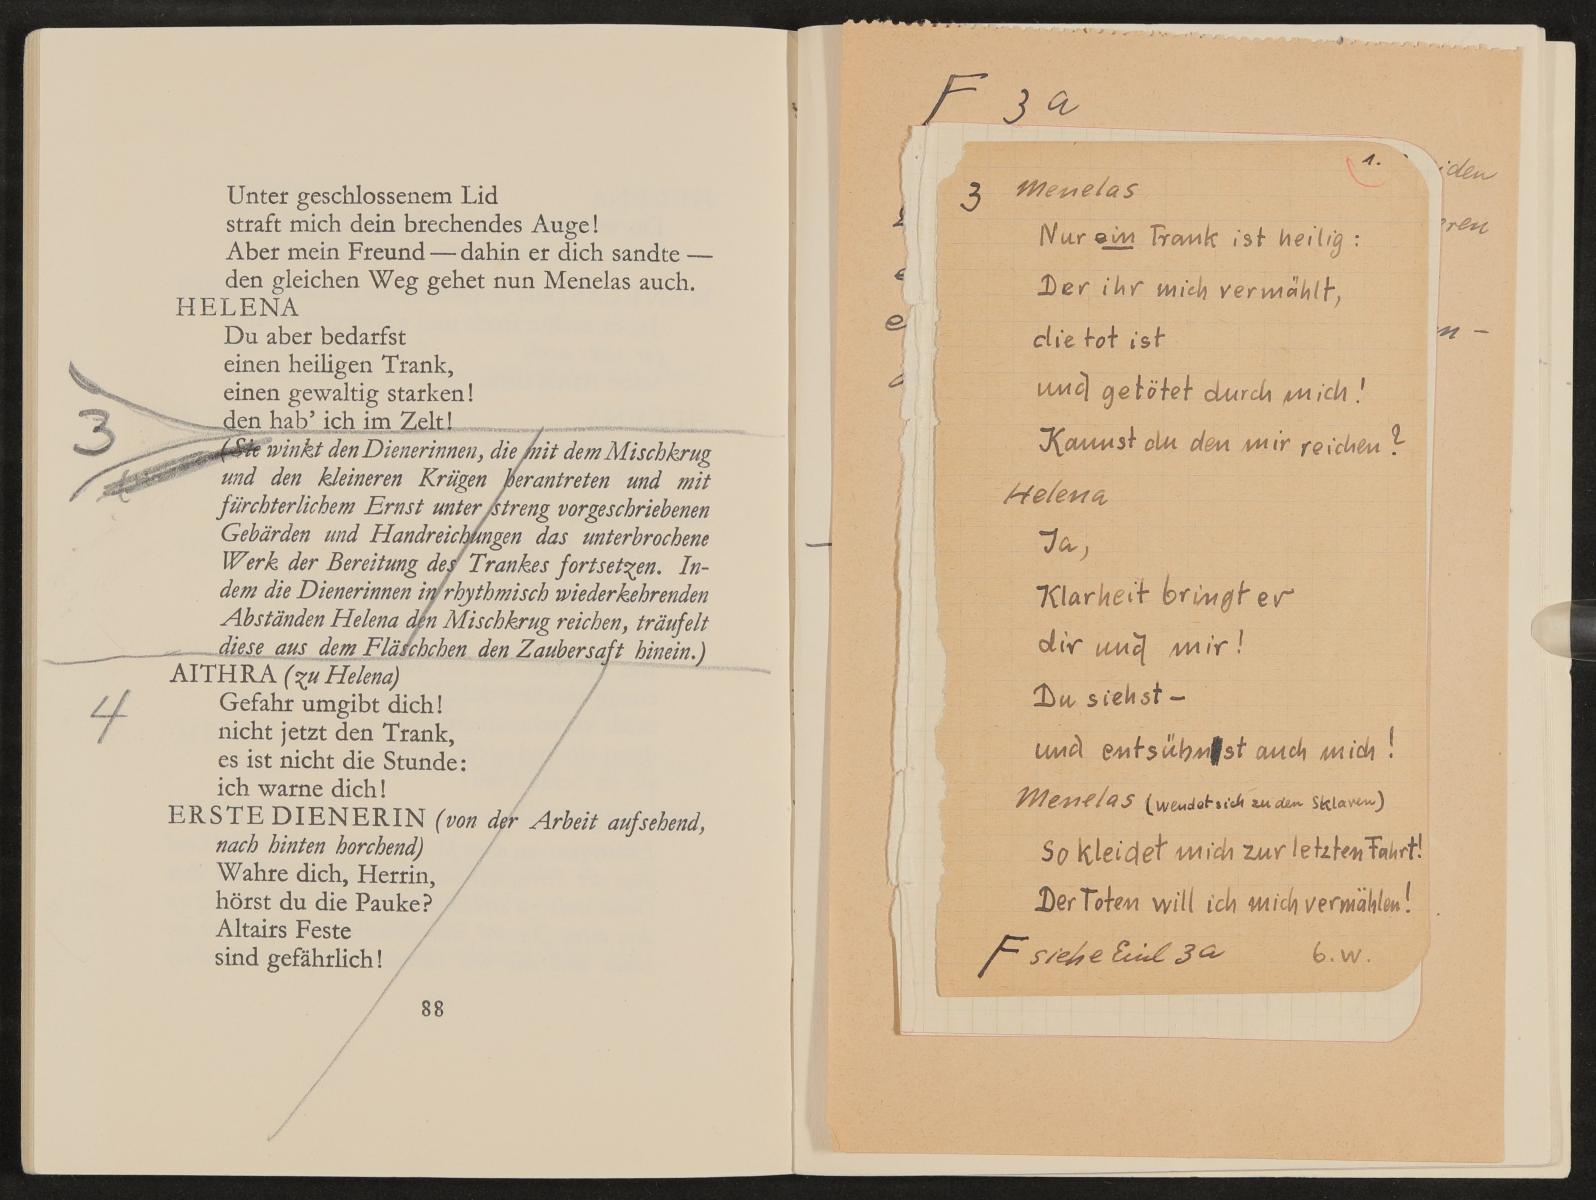 Unter geschlossenem Lid
straft mich dein brechendes Auge!
Aber mein Freund — dahin er dich sandte —
den gleichen Weg gehet nun Menelas auch.
HELENA
Du aber bedarfst
einen heiligen Trank,
einen gewaltig starken!
den hab' ich im Zelt!
3
(Sie winkt den Dienerinnen, die mit dem Mischkrug
und den kleineren Krügen herantreten und mit
fürchterlichem Ernst unter streng vorgeschriebenen
Gebärden und Handreichungen das unterbrochene
Werk der Bereitung des Trankes fortsetzen. In-
dem die Dienerinnen in rhythmisch wiederkehrenden
Abständen Helena den Mischkrug reichen, träufelt
diese aus dem Fläschchen den Zaubersaft hinein.)
AITHRA (zu Helena)
4
Gefahr umgibt dich!
nicht jetzt den Trank,
es ist nicht die Stunde:
ich warne dich!
ERSTE DIENERIN (von der Arbeit aufsehend,
nach hinten horchend)
Wahre dich, Herrin,
hörst du die Pauke?
Altairs Feste
sind gefährlich!
88
F 3a
1.
3 Menelas
Nur ein Trank ist heilig:
Der ihr mich vermählt,
die tot ist
und getötet durch mich!
Kannst du den mir reichen?
Helena
Ja,
Klarheit bringt er
dir und mir!
Du siehst –
und entsühnst auch mich!
Menelas (wendet sich zu den Sklaven)
So kleidet mich zur letzten Fahrt!
Der Toten will ich mich vermählen!
F siehe Einl 3a b.w.